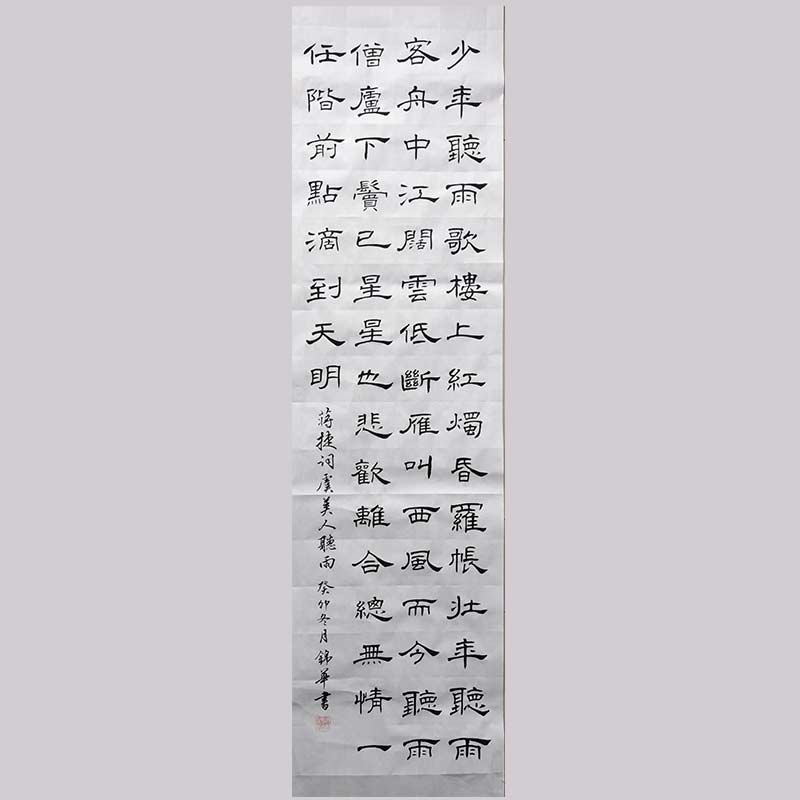 少年聽雨歌樓上紅燭昏羅帳壯年聽雨
客舟中江闊雲低斷雁叫西風而今聽雨
僧廬下鬢已星星也悲歡離合總無情一
任階前點滴到天明
蔣捷詞虞美人聽雨 癸卯冬月 錦華書